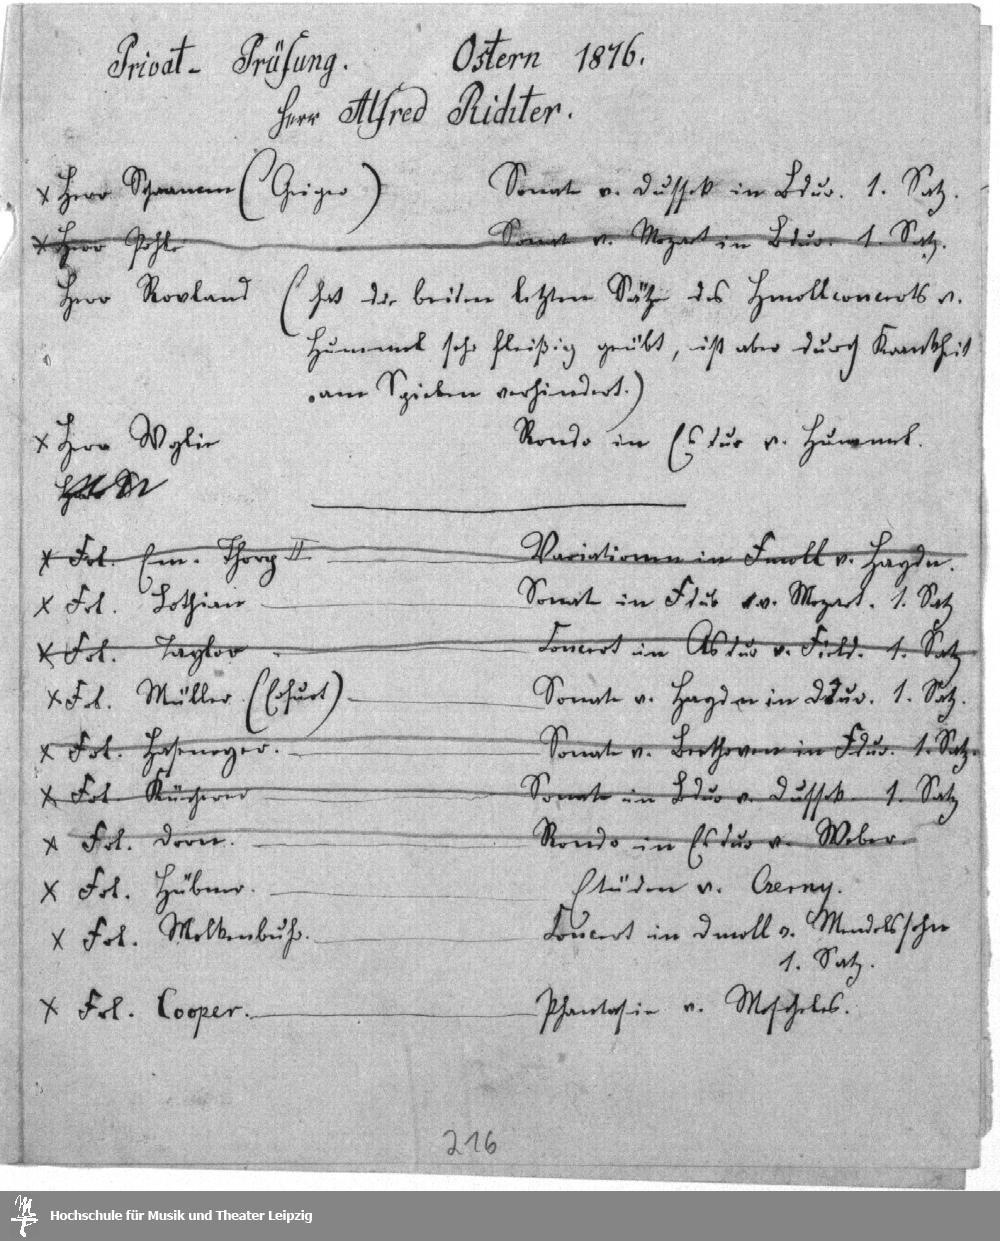 Privat- Prüfung. Ostern 1876.
Herr Alfred Richter.
× Herr Schramm (Geiger) Sonate v. Dussek in Bdur. 1. Satz.
× Herr Pohle Sonate v. Mozart in Bdur. 1. Satz.
Herr Rovland (hat die beiden letzten Sätze des Hmollconcerts v.
Hummel sehr fleißig geübt, ist aber durch Krankheit
am Spielen verhindert.)
× Herr Wylie Rondo in Es dur v. Hummel.
× Frl. Em. Thorp II Variationen in Fmoll v. Haydn.
× Frl. Lothian Sonate in Fdur v. Mozart. 1. Satz
× Frl. Taylor Concert in Asdur v. Field. 1. Satz
× Frl. Müller (Erfurt) Sonate v. Haydn in Ddur. 1. Satz.
× Frl. Hasemeyer. Sonate v. Beethoven in Fdur. 1. Satz.
× Frl. Sonate in Bdur v. Dussek. 1. Satz
× Frl. Dorn. Rondo in Esdur v. Weber.
× Frl. Hübner. Etüden v. Czerny.
× Frl. Molkenbuhr. Concert in Dmoll v. Mendelssohn
1. Satz.
× Frl. Cooper. Phantasie v. Moscheles.
216
Hochschule für Musik und Theater Leipzig